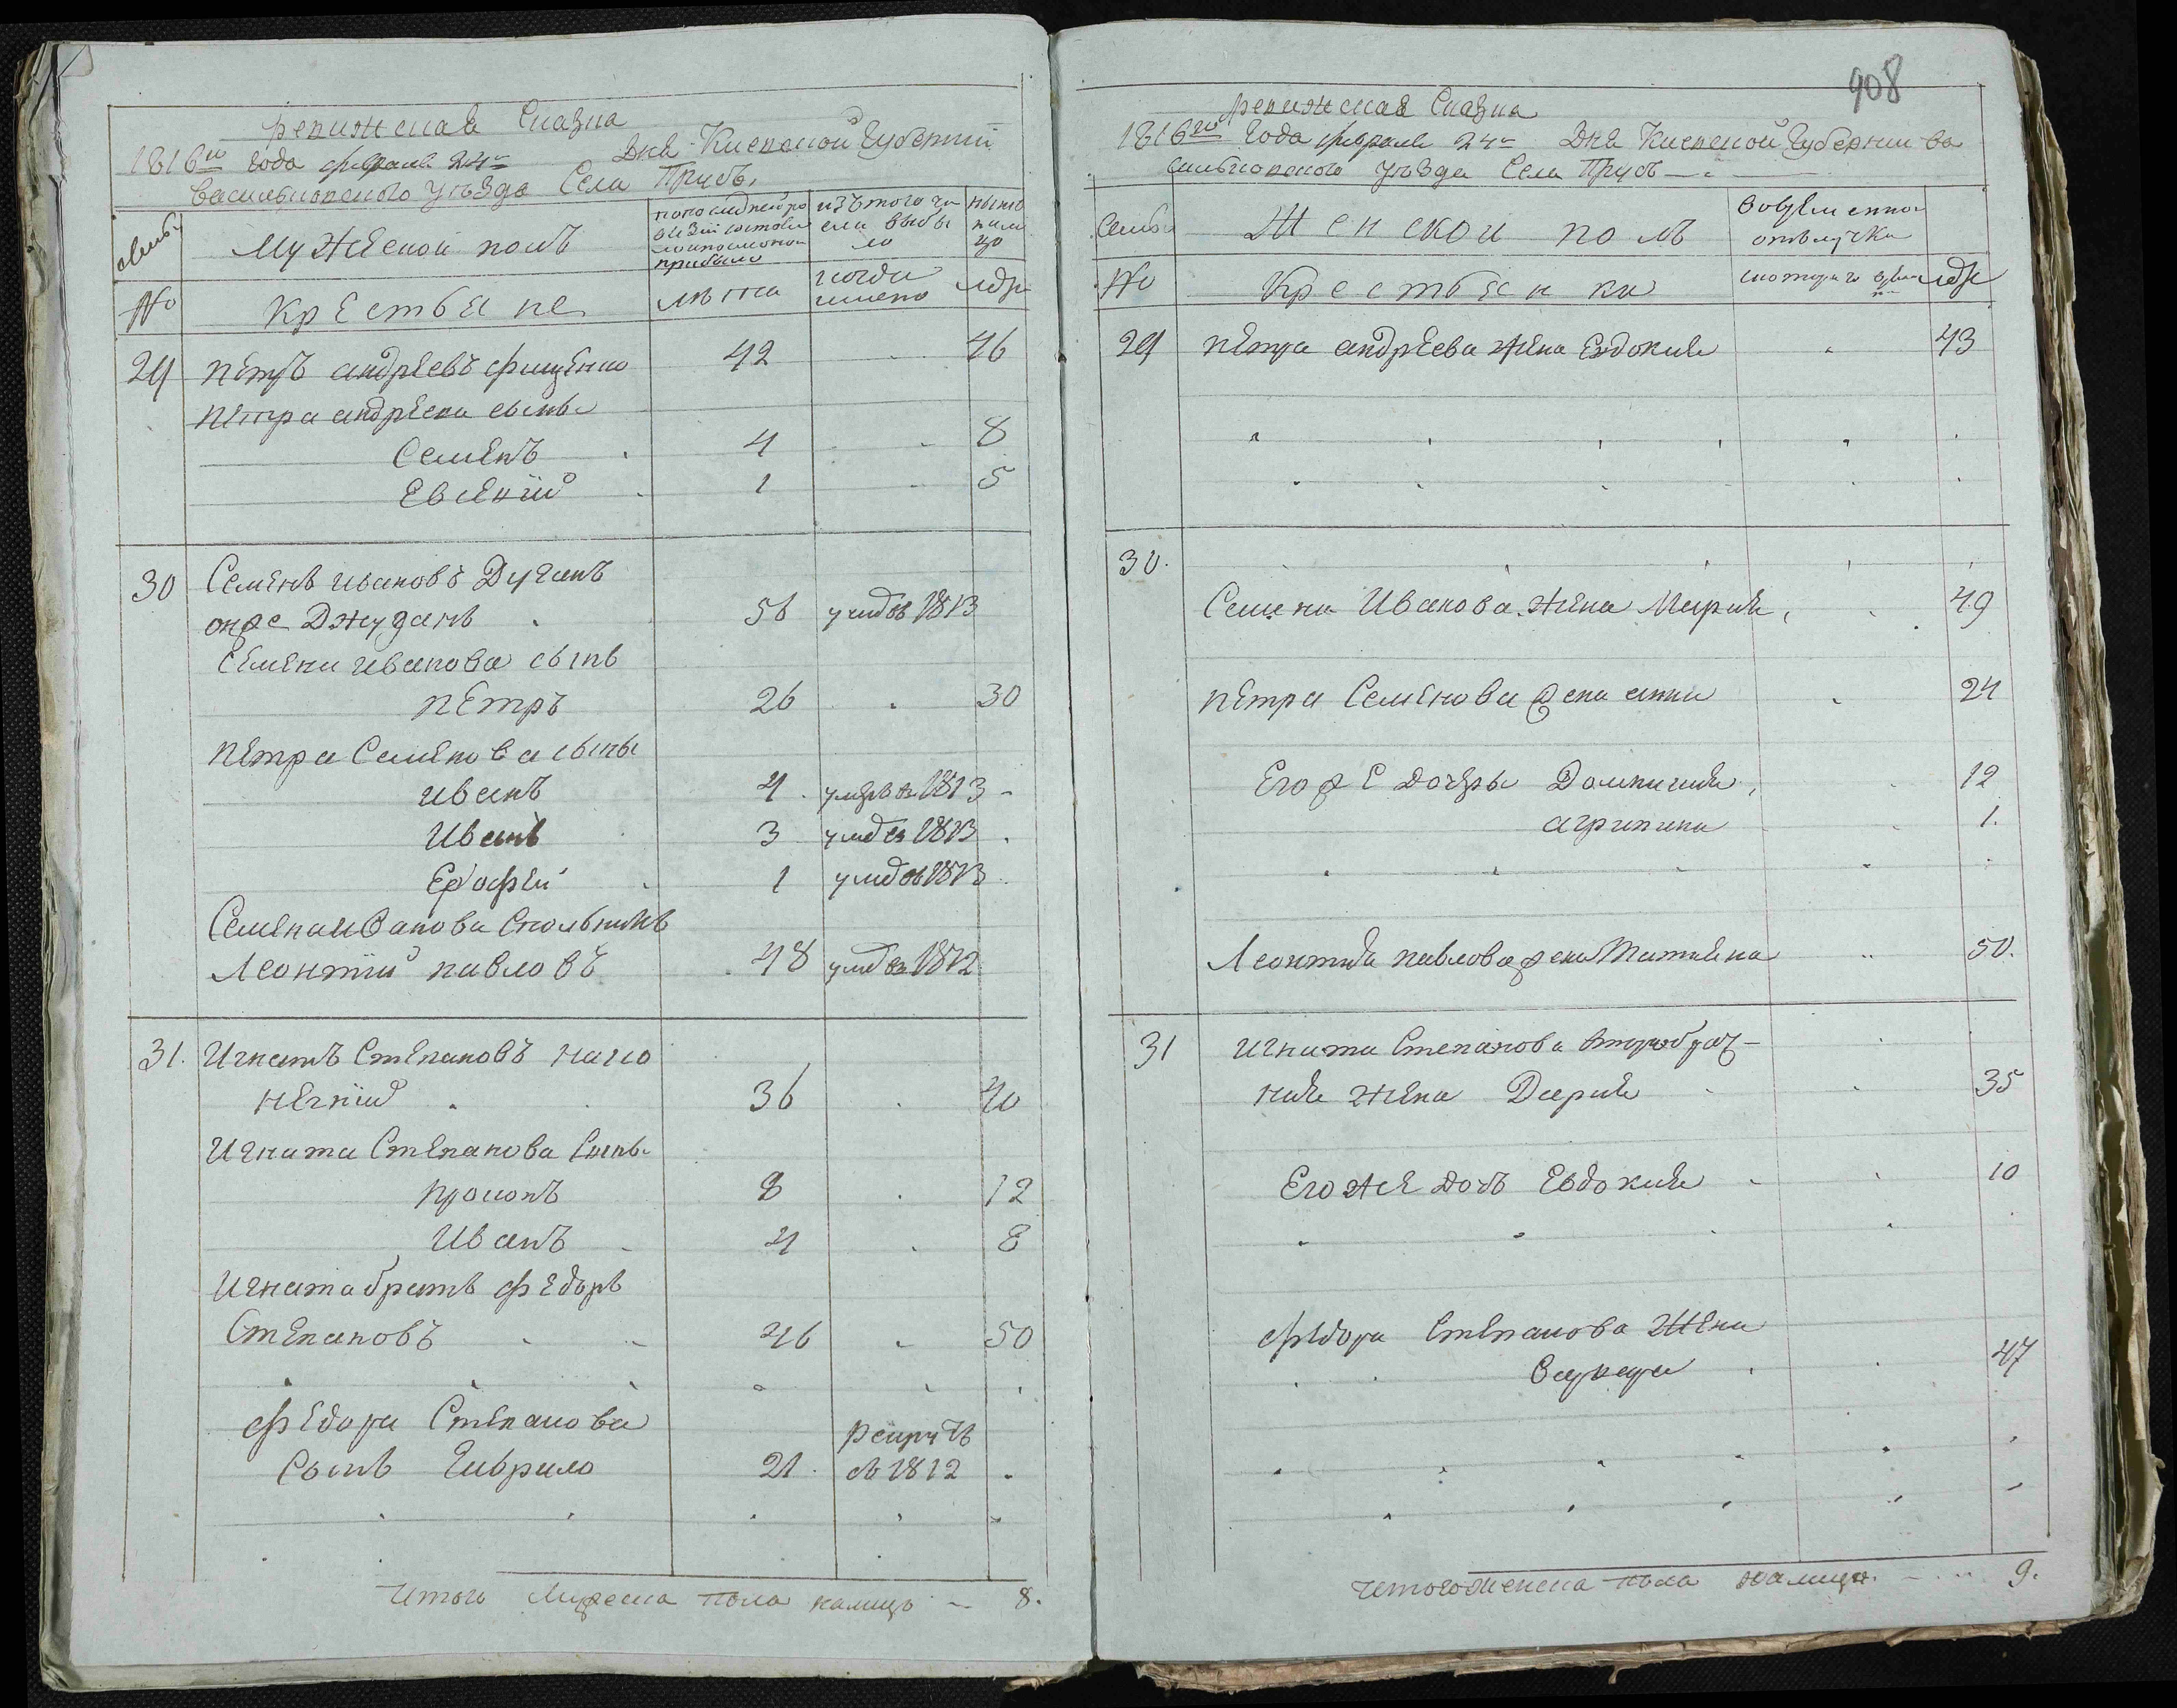 Ревижская Сказка
1816го Года февраля 24го Дня Киевской Губернии
Васильковского Уезда Села Прусъ.
Семьи
Мужеской полъ
по последней ре
визии состояло
и после оной
прибыло
изътого чи
сла выбы
ло
ныне
нали
цо
№
Крестьяне
лѣта
когда
имено
лѣта
29 Пѣтръ андрѣевъ фищѣнко 42 46
Пѣтра андрѣева сыны
Семѣнъ 4 8
Евсѣний 1 5
30 Семѣнъ ивановъ Дуганъ
онже Джуганъ 56 умръ въ 1813
Семѣна иванова сынъ
Пѣтръ 26 30
Пѣтра Семѣнова сыны
иванъ 4 умръ въ 1813
Иванъ 3 умръ въ 1813
Ерофѣй 1 умръ въ 1813
Семѣна иванова
Леонтий павловъ 48 умръ въ 1812
31. Игнатъ Стѣпановъ нако
нѣчний 36 40
Игната Стѣпанова Сыны
Прокопъ 8 12
Иванъ 4 8
Игната братъ фѣдоръ
Стѣпановъ 46 50
фѣдора Стѣпанова
Сынъ Гаврило 21 рекрутъ въ 1812
Итого Мужеска пола налицо 8.
908
Ревижская Сказка
1816го Года февраля 24го Дня Киевской Губернии Ва
сильковского Уезда Села Прусъ
Семьи
Женской полъ
Вовременной
отълучки
№
Крестьянки
скотораго времени
лѣта
29 Пѣтра андрѣева жѣна Евдокия 43
30.
Семена Иванова жѣна Мария, 49
Пѣтра Семѣнова жена анна 24
Егоже дочѣры Домникия, 12
агрипина 1.
Леонтия павлова жена Татияна 50.
31 Игната Степанова второбрач-
ния жѣна Дария 35
Егоже дочъ Евдокия 10
фѣдора Стѣпанова Жѣна
Варвара 47
Итого женска пола налицо 9.